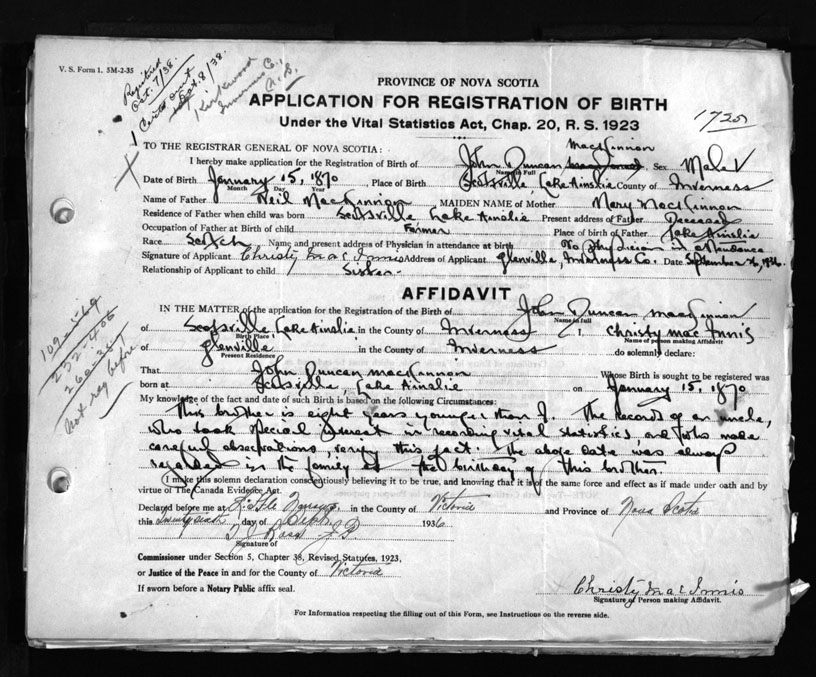 V. S. Form 1. 5M-2-35
Registered
Oct. 7/38.
Oct. 8/38.
Kirkwood
Inverness Co.,
N.S.
PROVINCE OF NOVA SCOTIA
APPLICATION FOR REGISTRATION OF BIRTH
Under the Vital Statistics Act, Chap. 20, R. S. 1923
TO THE REGISTRAR GENERAL OF NOVA SCOTIA:
MacKinnon
I hereby make application for the Registration of Birth of John Duncan Sex Male
Name in Full
Date of Birth January 15, 1870, Place of Birth Scotsville Lake Ainslie County of Inverness
Month Day Year
Name of Father Neil MacKinnon MAIDEN NAME of Mother Mary MacKinnon
Residence of Father when child was born Scotsville Lake Ainslie Present address of Father Deceased
Occupation of Father at Birth of Child Farmer Place of birth of Father Lake Ainslie
Race Scotch Name and present address of Physician in attendance at birth No physician in attendance
Signature of Applicant Christy MacInnis Address of Applicant Glenville, Inverness Co. Date September 26, 1936.
Relationship of Applicant to child Sister.
AFFIDAVIT
IN THE MATTER of the application for the Registration of the Birth of John Duncan MacKinnon
Name in full
of Scotsville Lake Ainslie in the County of Inverness I, Christy Mac Innis
Birth Place Name of person making Affidavit
of Glenville in the County of Inverness do solemnly declare:
Present Residence
109-
Not reg before
That John Duncan MacKinnon Whose Birth is sought to be registered was
born at Scotsville, Lake Ainslie on January 15, 1870
My knowledge of the fact and date of such Birth is based on the following Circumstances:
This brother is eight years younger than I. The records of an uncle,
who took special interest in recording vital statistics, and who made
careful observations, verify this fact. The above date was always
regarded in the family as the birthday of this brother.
I make this solemn declaration conscientiously believing it to be true, and knowing that it is of the same force and effect as if made under oath and by
virtue of The Canada Evidence Act.
Declared before me at Little Narrows in the County of Victoria and Province of Nova Scotia
this twenty sixth day of Sept. 1936
Ross J.P.
Signature of
Commissioner under Section 5, Chapter 38, Revised Statutes, 1923,
or Justice of the Peace in and for the County of Victoria
If sworn before a Notary Public affix seal.
Christy MacInnis
Signature of Person making Affidavit.
For Information respecting the filling out of this Form, see Instructions on the reverse side.